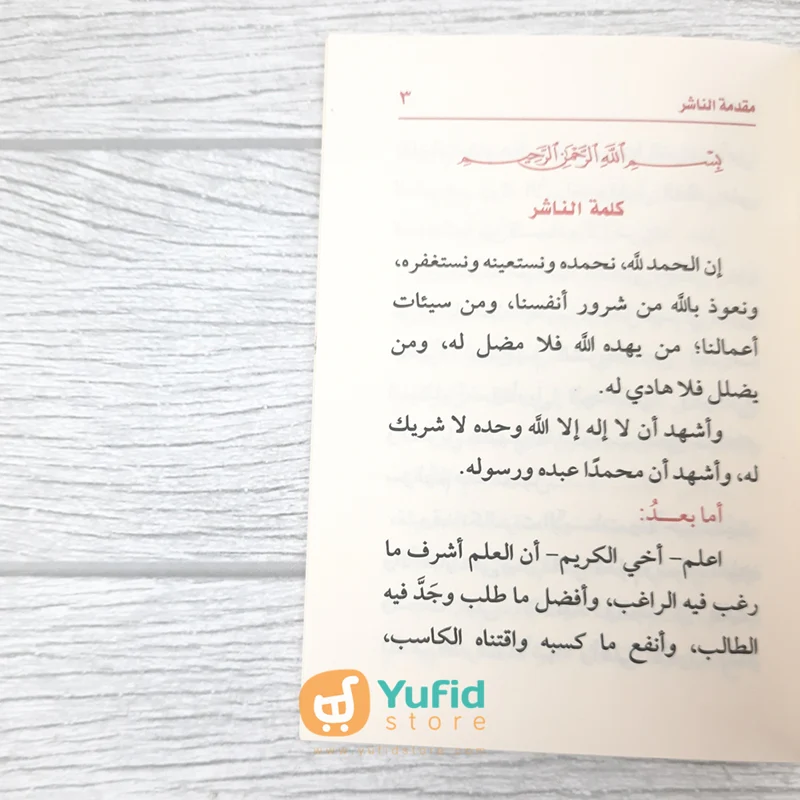 مقدمة الناشر ٣
بسم الله الرحمن الرحيم
كلمة الناشر
إن الحمد لله، نحمده ونستعينه ونستغفره،
ونعوذ بالله من شرور أنفسنا، ومن سيئات
أعمالنا؛ من يهده الله فلا مضل له، ومن
يضلل فلا هادي له.
وأشهد أن لا إله إلا الله وحده لا شريك
له، وأشهد أن محمدًا عبده ورسوله.
أما بعـــدُ:
اعلم– أخي الكريم– أن العلم أشرف ما
رغب فيه الراغب، وأفضل ما طلب وجَدَّ فيه
الطالب، وأنفع ما كسبه واقتناه الكاسب،
Yufid
store